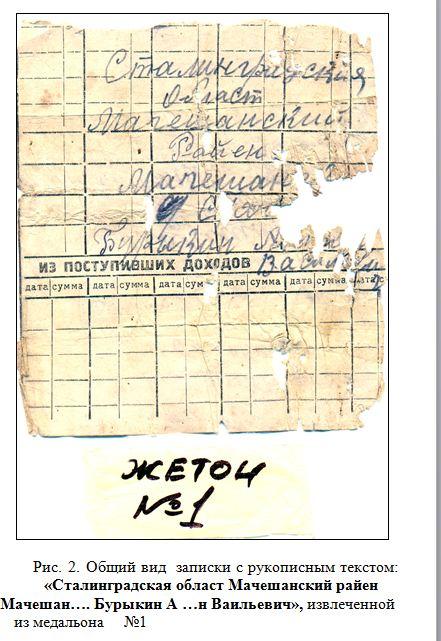 Сталинградская
област
Мачешанский
Район
Мачешан
Бурыкин
ИЗ ПОСТУПИВШИХ ДОХОДОВ Василь
дата сумма дата сумма дата сум дата сумма дата сумма дата
ЖЕТОН
№1
Рис. 2. Общий вид записки с рукописным текстом:
«Сталинградская област Мачешанский райен
Мачешан…. Бурыкин А …н Ваильевич», извлеченной
из медальона №1